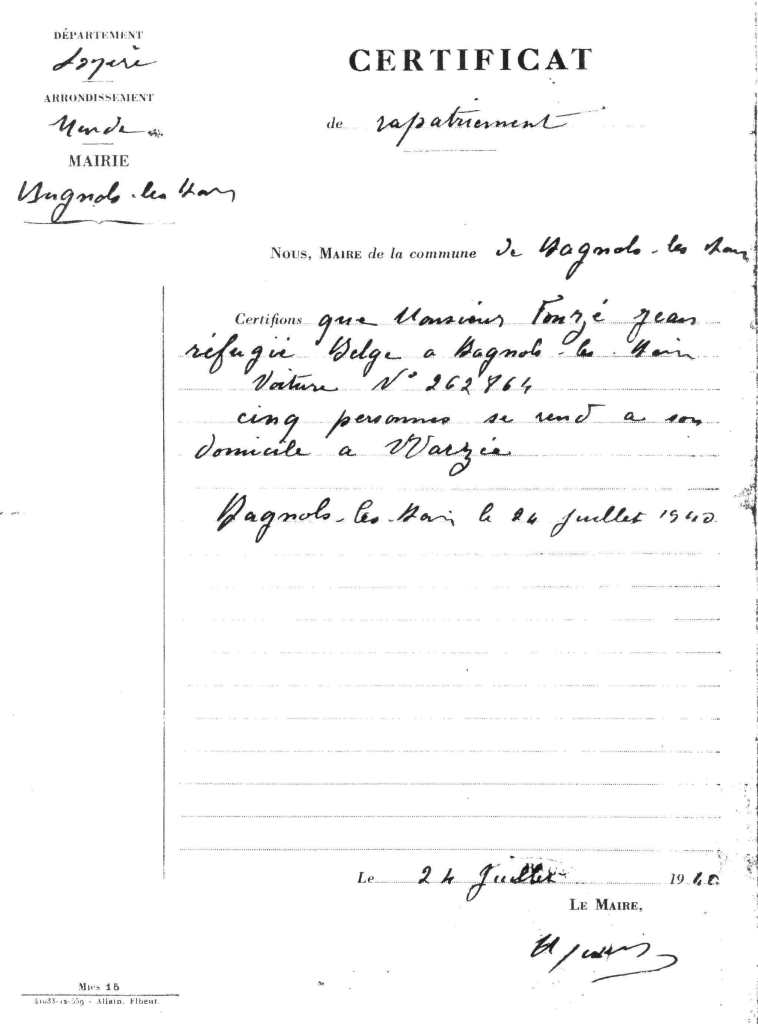 DÉPARTEMENT
Lozère
ARRONDISSEMENT
Mende
MAIRIE
Bagnols-les-Bains
CERTIFICAT
de rapatriement
NOUS, MAIRE de la commune de Bagnols-les-Bains
Certifions que Monsieur Fonzé Jean
réfugié Belge a Bagnols-les-Bains
Voiture N° 262764
cinq personnes se rend a son
domicile a Warzée
Bagnols-les-Bains le 24 Juillet 1940
Le 24 Juillet 1940
LE MAIRE,
Mies 15
- Allain, Elbeuf.